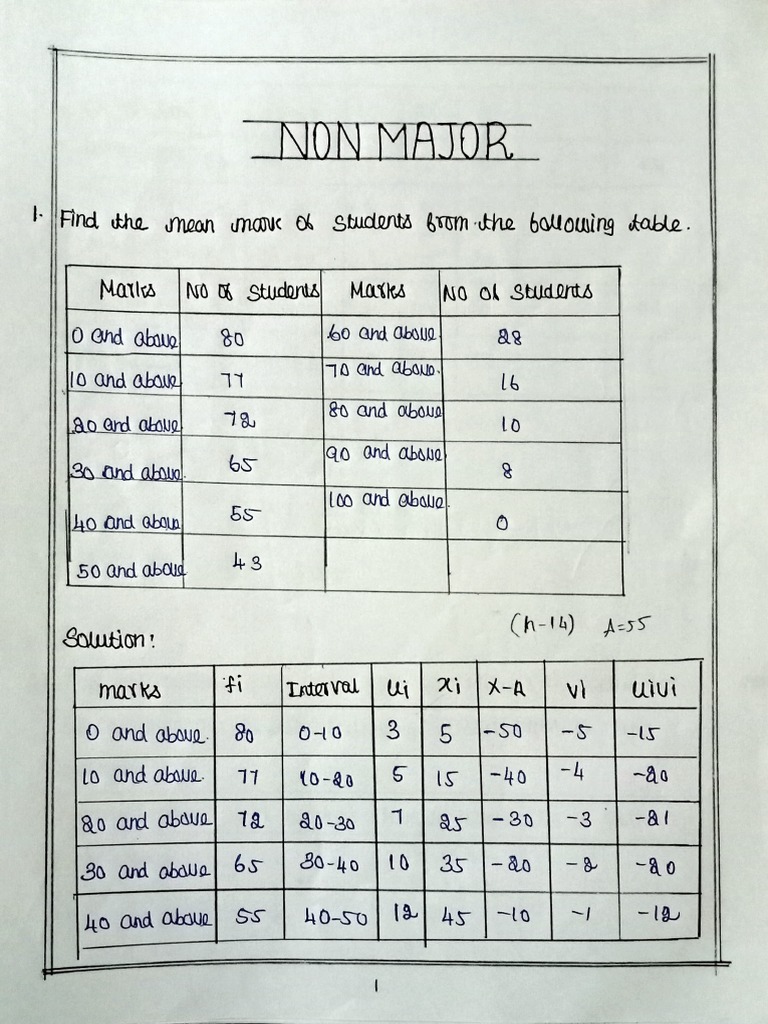 NON MAJOR
1. Find the mean mark of students from the following table.
Marks No of students Marks No of students
0 and above 80 60 and above 28
10 and above 77 70 and above. 16
20 and above 72 80 and above 10
30 and above. 65 90 and above 8
40 and above 55 100 and above. 0
50 and above 43
(h-14) A=55
Solution:
marks fi Interval ui xi x-A vi uivi
0 and above. 80 0-10 3 5 -50 -5 -15
10 and above. 77 10-20 5 15 -40 -4 -20
20 and above 72 20-30 7 25 -30 -3 -21
30 and above 65 30-40 10 35 -20 -2 -20
40 and above 55 40-50 12 45 -10 -1 -12
1